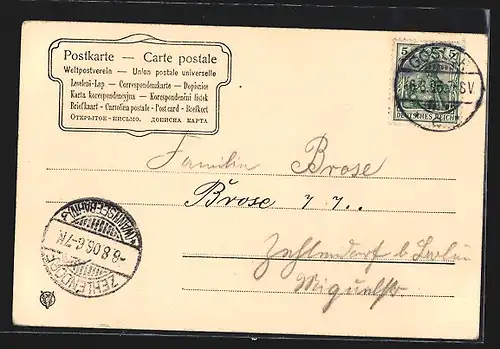 Postkarte — Carte postale
Weltpostverein — Union postale universelle
Levelezö-Lap. — Correspondenzkarte — Dopisnice
Karta korespondencyjna — Korespondenčni listek
Brefkaart - Cartolina postale - Postcard - Brefkort
Открытое письмо. дописна карта
5 5
GOSLAR
DEUTSCHES REICH
Familie Brose
Brose
Zehlendorf b Berlin
ZEHLENDORF
(WANNSEEBAHN)
-6.8.06.6-7N.